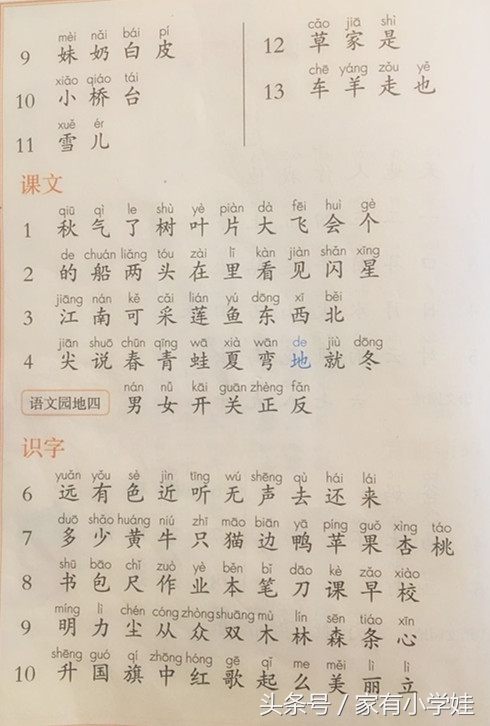 mèi nǎi bái pí
9 妹 奶 白 皮
xiǎo qiáo tái
10 小 桥 台
xuě ér
11 雪 儿
cǎo jiā shì
12 草 家 是
chē yáng zǒu yě
13 车 羊 走 也
课文
qiū qì le shù yè piàn dà fēi huì gè
1 秋 气 了 树 叶 片 大 飞 会 个
de chuán liǎng tóu zài lǐ kàn jiàn shǎn xīng
2 的 船 两 头 在 里 看 见 闪 星
jiāng nán kě cǎi lián yú dōng xī běi
3 江 南 可 采 莲 鱼 东 西 北
jiān shuō chūn qīng wā xià wān de jiù dōng
4 尖 说 春 青 蛙 夏 弯 地 就 冬
nán nǚ kāi guān zhèng fǎn
语文园地四 男 女 开 关 正 反
识字
yuǎn yǒu sè jìn tīng wú shēng qù hái lái
6 远 有 色 近 听 无 声 去 还 来
duō shǎo huáng niú zhī māo biān yā píng guǒ xìng táo
7 多 少 黄 牛 只 猫 边 鸭 苹 果 杏 桃
shū bāo chǐ zuò yè běn bǐ dāo kè zǎo xiào
8 书 包 尺 作 业 本 笔 刀 课 早 校
míng lì chén cóng zhòng shuāng mù lín sēn tiáo xīn
9 明 力 尘 从 众 双 木 林 森 条 心
shēng guó qí zhōng hóng gē qǐ me měi lì lì
10 升 国 旗 中 红 歌 起 么 美 丽 立
头条号 / 家有小学娃